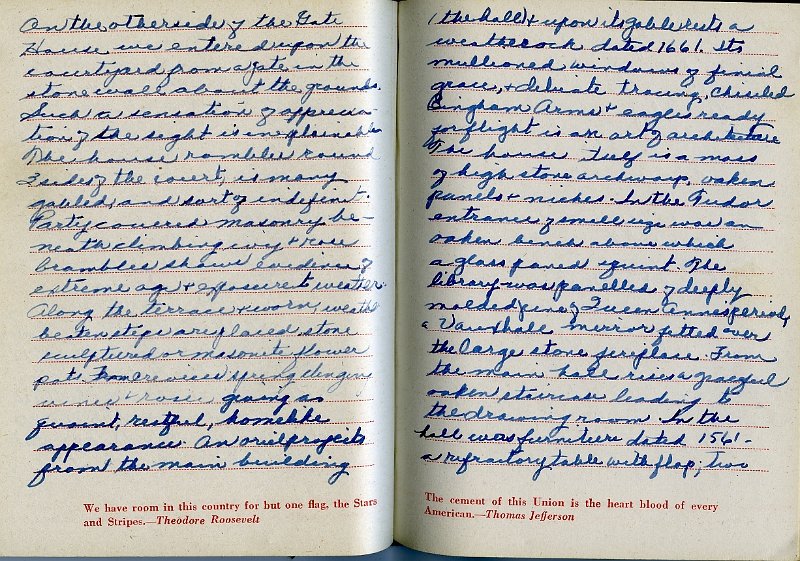 On the otherside of the Gate
House we entered upon the
courtyard from a gate in the
stone walls about the grounds.
Such a sensation of apprecia-
tion of the sight is inexplainable
The house rambles round
3 sides of the court, is many
gabled, and sort of indefinit.
Partly covered masonry be-
neath climbing ivy + rose
brambles shows evidence of
extreme age + exposure to weather.
Along the terrace + worn, weath
beaten steps are placed stone
sculptured or masonite flower
pots. From crevices spring clinging
vines + roses giving as
quaint, restful, homelike
appearance. An oriel projects
from the main building
We have room in this country for but one flag, the Stars
and Stripes.—Theodore Roosevelt
(the hall) + upon its gable rests a
weathercock dated 1661. Its
mullioned windows of finial
grace, + delicate tracing, chiseled
Bingham Arms + eagles ready
for flight is an art of architecture
The house itself is a mass
of high stone archways, oaken
panels + niches. In the Tudor
entrance of small size was an
oaken bench above which
a glass paned squint. The
library was panelled of deeply
molded pine of Queen Annes period,
a Vauxhall mirror fitted over
the large stone fireplace. From
the main hall rises a graceful
oaken staircase leading to
the drawing room. In the
hall was furniture dated 1561-
a refractory table with flap; two
The cement of this Union is the heart blood of every
American.—Thomas Jefferson